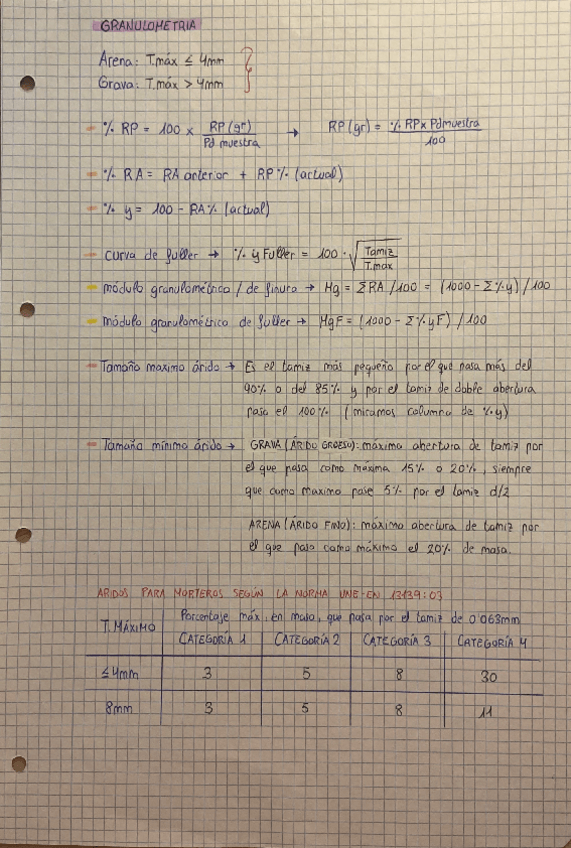 GRANULOMETRIA
Arena: T.máx ≤ 4mm
Grava: T.máx > 4mm
- % RP = 100 x RP(gr) / Pd muestra → RP(gr) = % RP x Pdmuestra / 100
- % RA = RA anterior + RP% (actual)
- % y = 100 - RA% (actual)
- curva de fuller → % y Fuller = 100 · √(Tamiz / T.max)
- módulo granulométrico / de finura → Mg = ΣRA /100 = (1000 - Σ%y) / 100
- módulo granulométrico de fuller → MgF = (1000 - Σ%yF) / 100
- Tamaño maximo árido → Es el tamiz más pequeño por el que pasa más del
90% o del 85% y por el tamiz de doble abertura
pasa el 100% (miramos columna de %y)
- Tamaño mínimo árido → GRAVA (ÁRIDO GRUESO): máxima abertura de tamiz por
el que pasa como máximo 15% o 20%, siempre
que como maximo pase 5% por el tamiz d/2
ARENA (ÁRIDO FINO): máxima abertura de tamiz por
el que pasa como máximo el 20% de masa.
ARIDOS PARA MORTEROS SEGÚN LA NORMA UNE-EN 13139:03
Porcentaje máx, en masa, que pasa por el tamiz de 0'063mm
T. MÁXIMO CATEGORÍA 1 CATEGORÍA 2 CATEGORÍA 3 CATEGORÍA 4
≤4mm 3 5 8 30
8mm 3 5 8 11